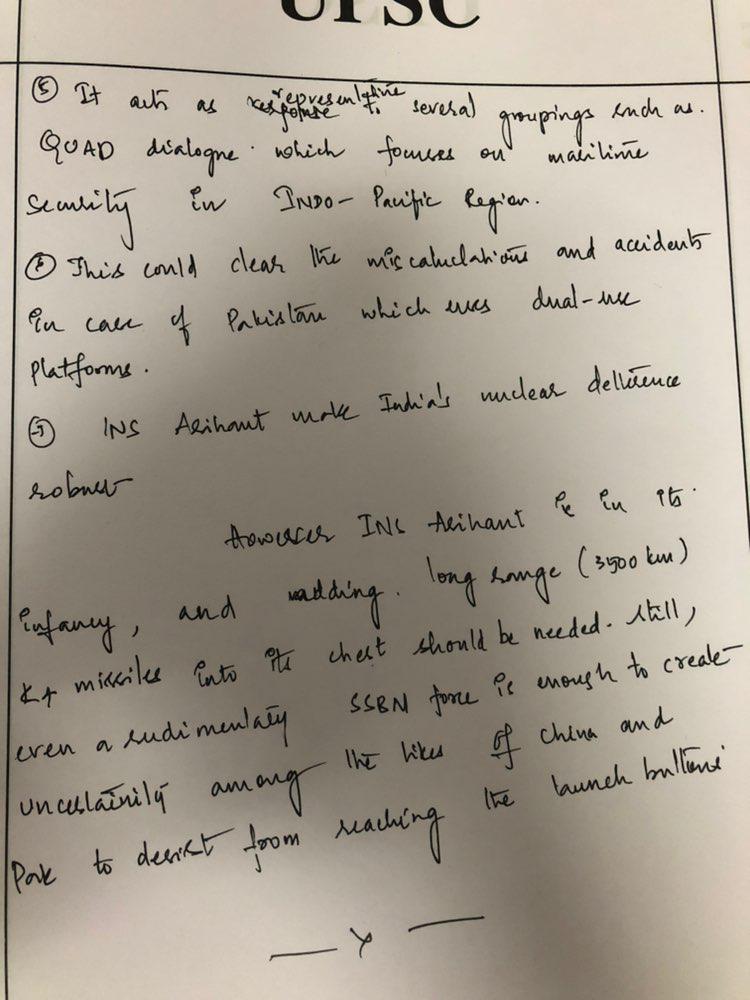 UPSC
⑤ It acts as representative to several groupings such as.
QUAD dialogue which focuses on maritime
security in INDO-Pacific Region.
⑥ This could clear the miscalculations and accidents
in case of Pakistan which uses dual-use
platforms.
⑦ INS Arihant make India's nuclear detterence
robust
However INS Arihant is in its
infancy, and adding. long range (3500 km)
K4 missiles into its chest should be needed. Still,
even a rudimentary SSBN force is enough to create
uncertainity among the likes of China and
Pak to desist from reaching the launch buttons
— x —